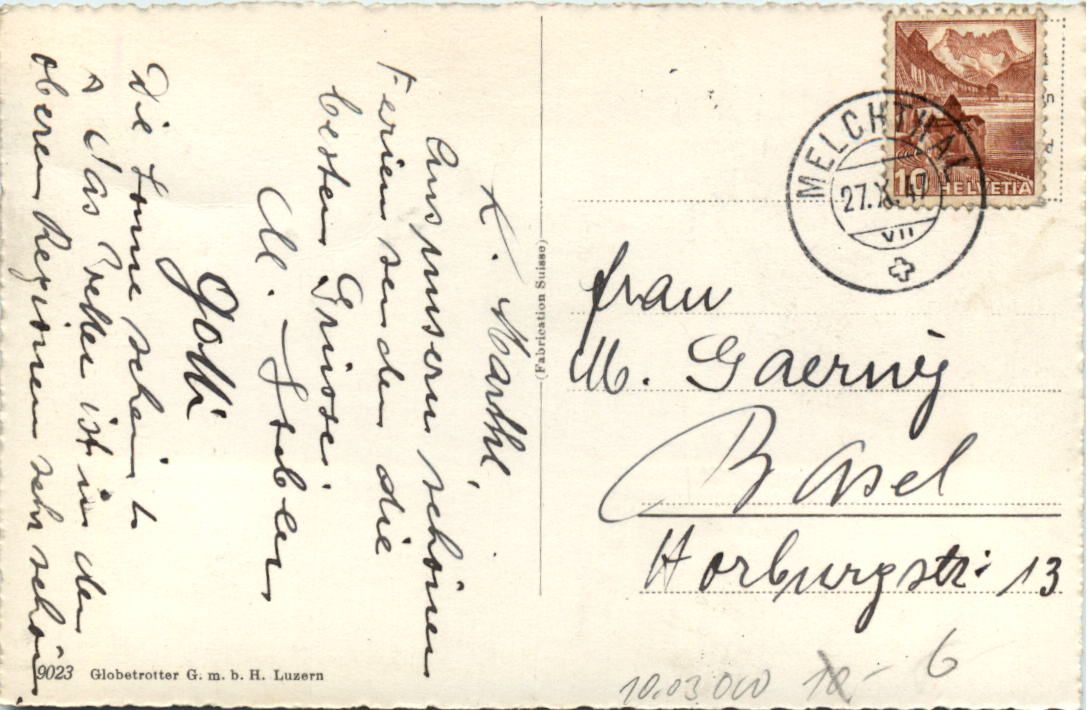 L. Marthl,
Aus unsern schönen
Ferien senden die
besten Grüsse
M. Gebler
Gotti
Die Sonne scheint
& das Wetter ist in den
oberen Regionen sehr schön.
(Fabrication Suisse)
MELCHTHAL
27.X.47
VII
10 HELVETIA
Frau
M. Gaernij
Basel
Horburgstr. 13
9023 Globetrotter G. m. b. H. Luzern
10.03.000 10.- 6